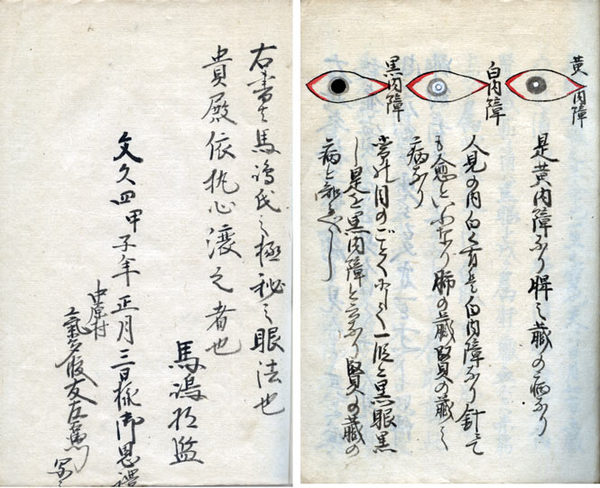 黄内障
是黄内障なり脾之蔵の病なり
白内障
人見の内白く有是白内障なり針にて
も愈といふなり肺の蔵賢の蔵之
病なり
黒内障
常の目のごとく
一段と黒眼黒
し是を黒内障と云なり賢の蔵の
病と
右書者馬嶋氏之極秘之眼法也
貴殿依執心渡之者也
馬嶋将監
文久四甲子年正月三日様御恩禮
中原村
友左衛門